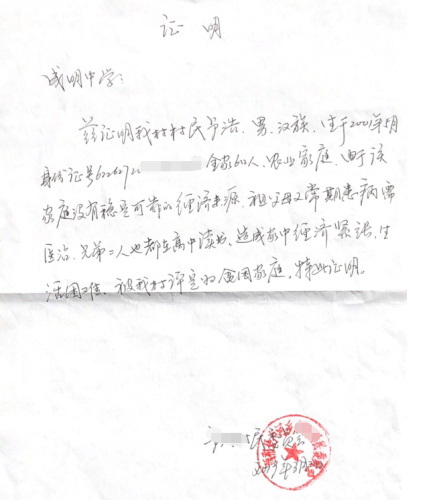 证 明
成明中学：
兹证明我村村民予浩、男、汉族、生于2001年5月
身份证号622627 全家6口人、农业家庭、由于该
家庭没有稳定可靠的经济来源、祖父母又常期患病需
医治、兄弟二人也都在高中读书、造成家中经济紧张、生
活困难、被我村评定为贫困家庭。特此证明。
民委员会
年3月